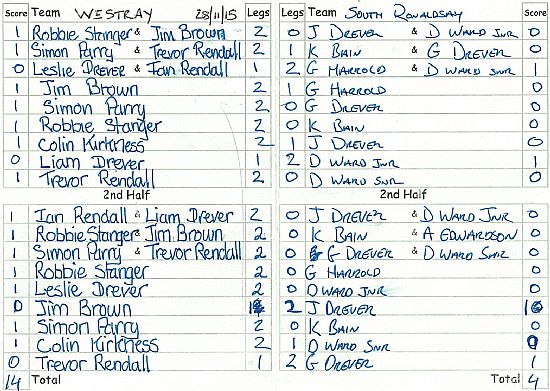 Score Team WESTRAY 28/11/15 Legs Legs Team SOUTH RONALDSAY Score
1 Robbie Stanger & Jim Brown 2 0 J DREVER & D WARD JNR 0
1 Simon Parry & Trevor Rendall 2 1 K BAIN & G DREVER 0
0 Leslie Drever & Ian Rendall 1 2 G HARROLD & D WARD SNR 1
1 Jim Brown 2 1 G HARROLD 0
1 Simon Parry 2 0 G DREVER 0
1 Robbie Stanger 2 0 K BAIN 0
1 Colin Kirkness 2 1 J DREVER 0
0 Liam Drever 1 2 D WARD JNR 1
1 Trevor Rendall 2 0 D WARD SNR 0
2nd Half 2nd Half
1 Ian Rendall & Liam Drever 2 0 J DREVER & D WARD JNR 0
1 Robbie Stanger & Jim Brown 2 0 K BAIN & A EDWARDSON 0
1 Simon Parry & Trevor Rendall 2 0 G DREVER & D WARD SNR 0
1 Robbie Stanger 2 0 G HARROLD 0
1 Leslie Drever 2 0 D WARD JNR 0
0 Jim Brown 1 2 J DREVER 1
1 Simon Parry 2 0 K BAIN 0
1 Colin Kirkness 2 1 D WARD SNR 0
0 Trevor Rendall 1 2 G DREVER 1
14 Total Total 4